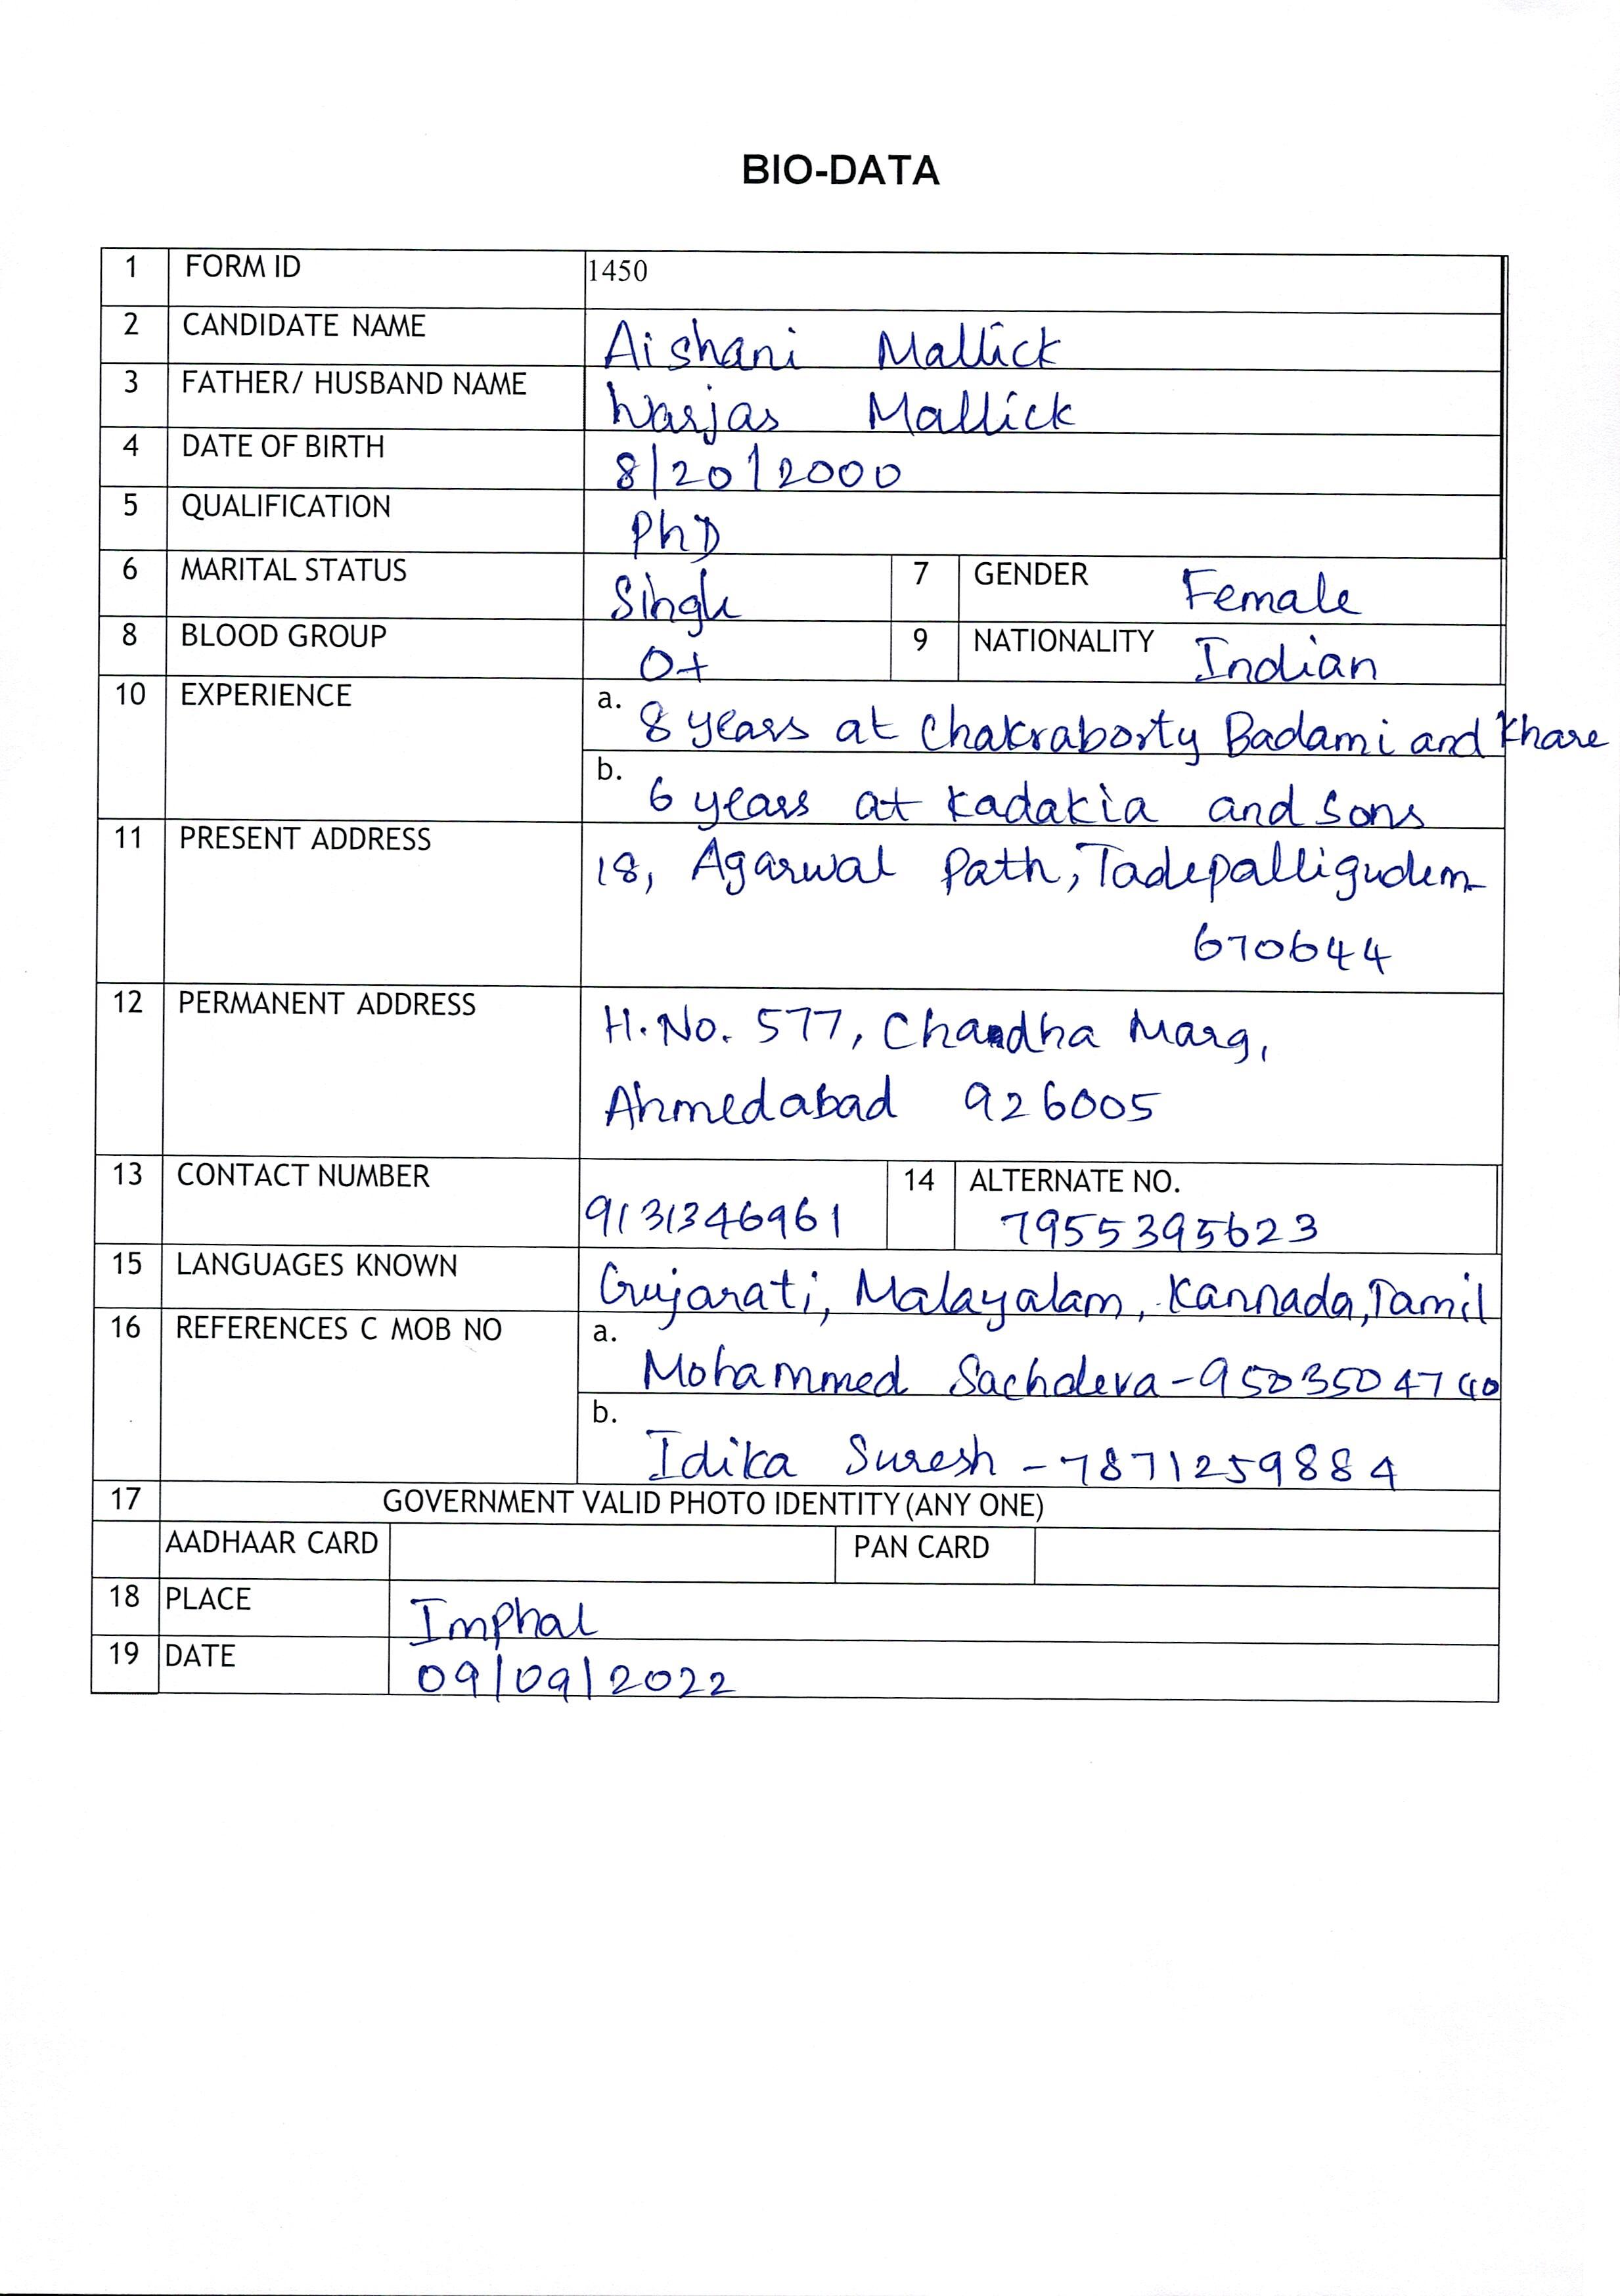 BIO-DATA
1 FORM ID 1450
2 CANDIDATE NAME Aishani Mallick
3 FATHER/ HUSBAND NAME Warjas Mallick
4 DATE OF BIRTH 8/20/2000
5 QUALIFICATION PhD
6 MARITAL STATUS Single 7 GENDER Female
8 BLOOD GROUP O+ 9 NATIONALITY Indian
10 EXPERIENCE a. 8 years at Chakraborty Badami and Khare
b. 6 years at Kadakia and Sons
11 PRESENT ADDRESS 18, Agarwal Path, Tadepalligudem
670644
12 PERMANENT ADDRESS H.No. 577, Chandha Marg,
Ahmedabad 926005
13 CONTACT NUMBER 9131346961 14 ALTERNATE NO. 7955395623
15 LANGUAGES KNOWN Gujarati, Malayalam, Kannada, Tamil
16 REFERENCES C MOB NO a. Mohammed Sachdeva - 9503504740
b. Idika Suresh - 7871259884
17 GOVERNMENT VALID PHOTO IDENTITY (ANY ONE)
AADHAAR CARD PAN CARD
18 PLACE Imphal
19 DATE 09/09/2022